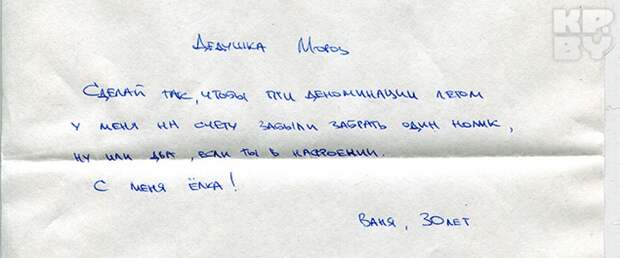 KP.
BY
Дедушка Мороз
Сделай так, чтобы пти деноминации летом
у меня на счету забыли забрать один нолик,
ну или два, если ты в настроении.
С меня ёлка!
Ваня, 30 лет